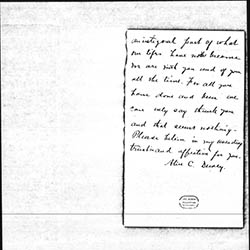 an integral part of what
our life
we are with you and of you
all the time. For all you
have done and been we
can only say thank you
and that seems nothing.
Please believe in my unending
trust and affection for you.
Alice C. Dewey.